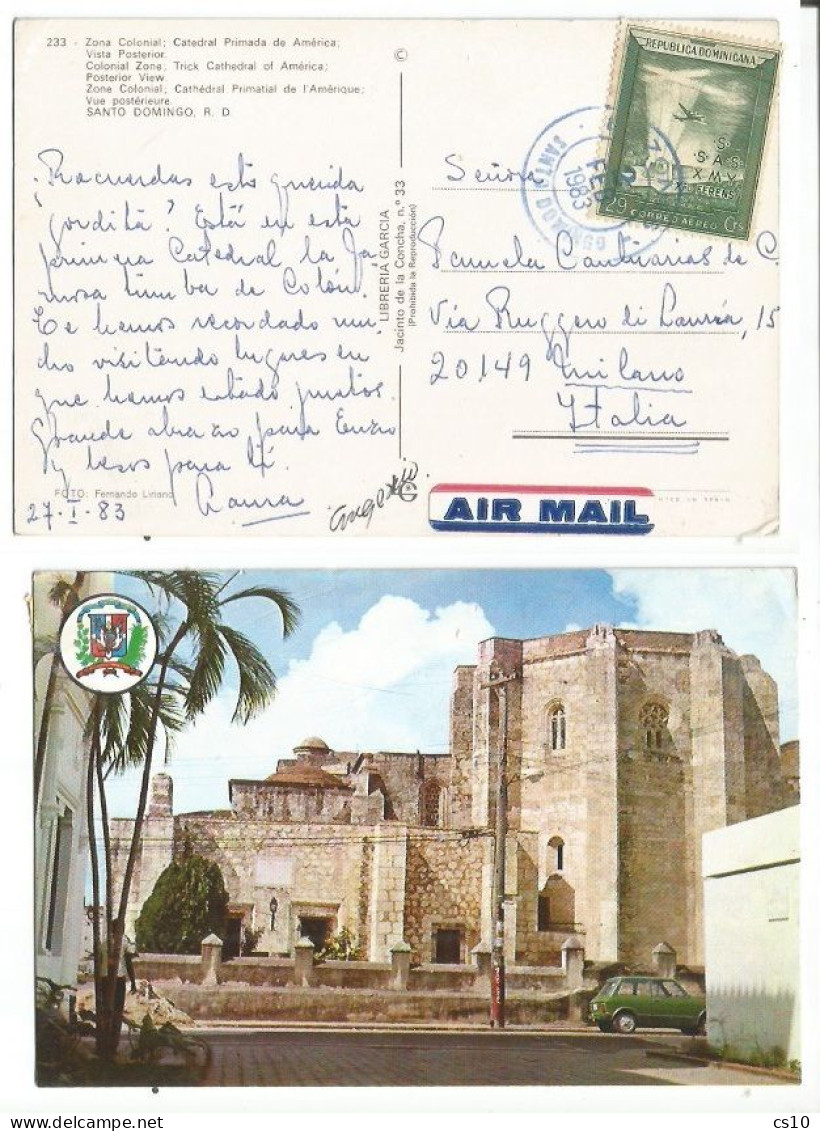 233 - Zona Colonial; Catedral Primada de América;
Vista Posterior.
Colonial Zone; Trick Cathedral of América;
Posterior View.
Zone Colonial; Cathédral Primatial de l'Amérique;
Vue postérieure.
SANTO DOMINGO, R. D.
¿Recuerdas esto querida
gordita? Está en esta
primera Catedral la fa-
mosa tumba de Colón.
Te hemos recordado mu-
cho visitando lugares en
que hemos estado juntos.
Grande abrazo para Enzo
y besos para tí.
Laura
27-I-83
FOTO: Fernando Liriano
©
LIBRERIA GARCIA
Jacinto de la Concha, n.º 33
(Prohibida la Reproducción)
REPUBLICA DOMINICANA
S.
S.A.S.
X M Y
29 CORREO AEREO Cts
SANTO DOMINGO
2
FEB
1983
Señora
de C.
Vía Ruggero di Lauria, 15
20149 Milano
Italia
AIR MAIL
cs10